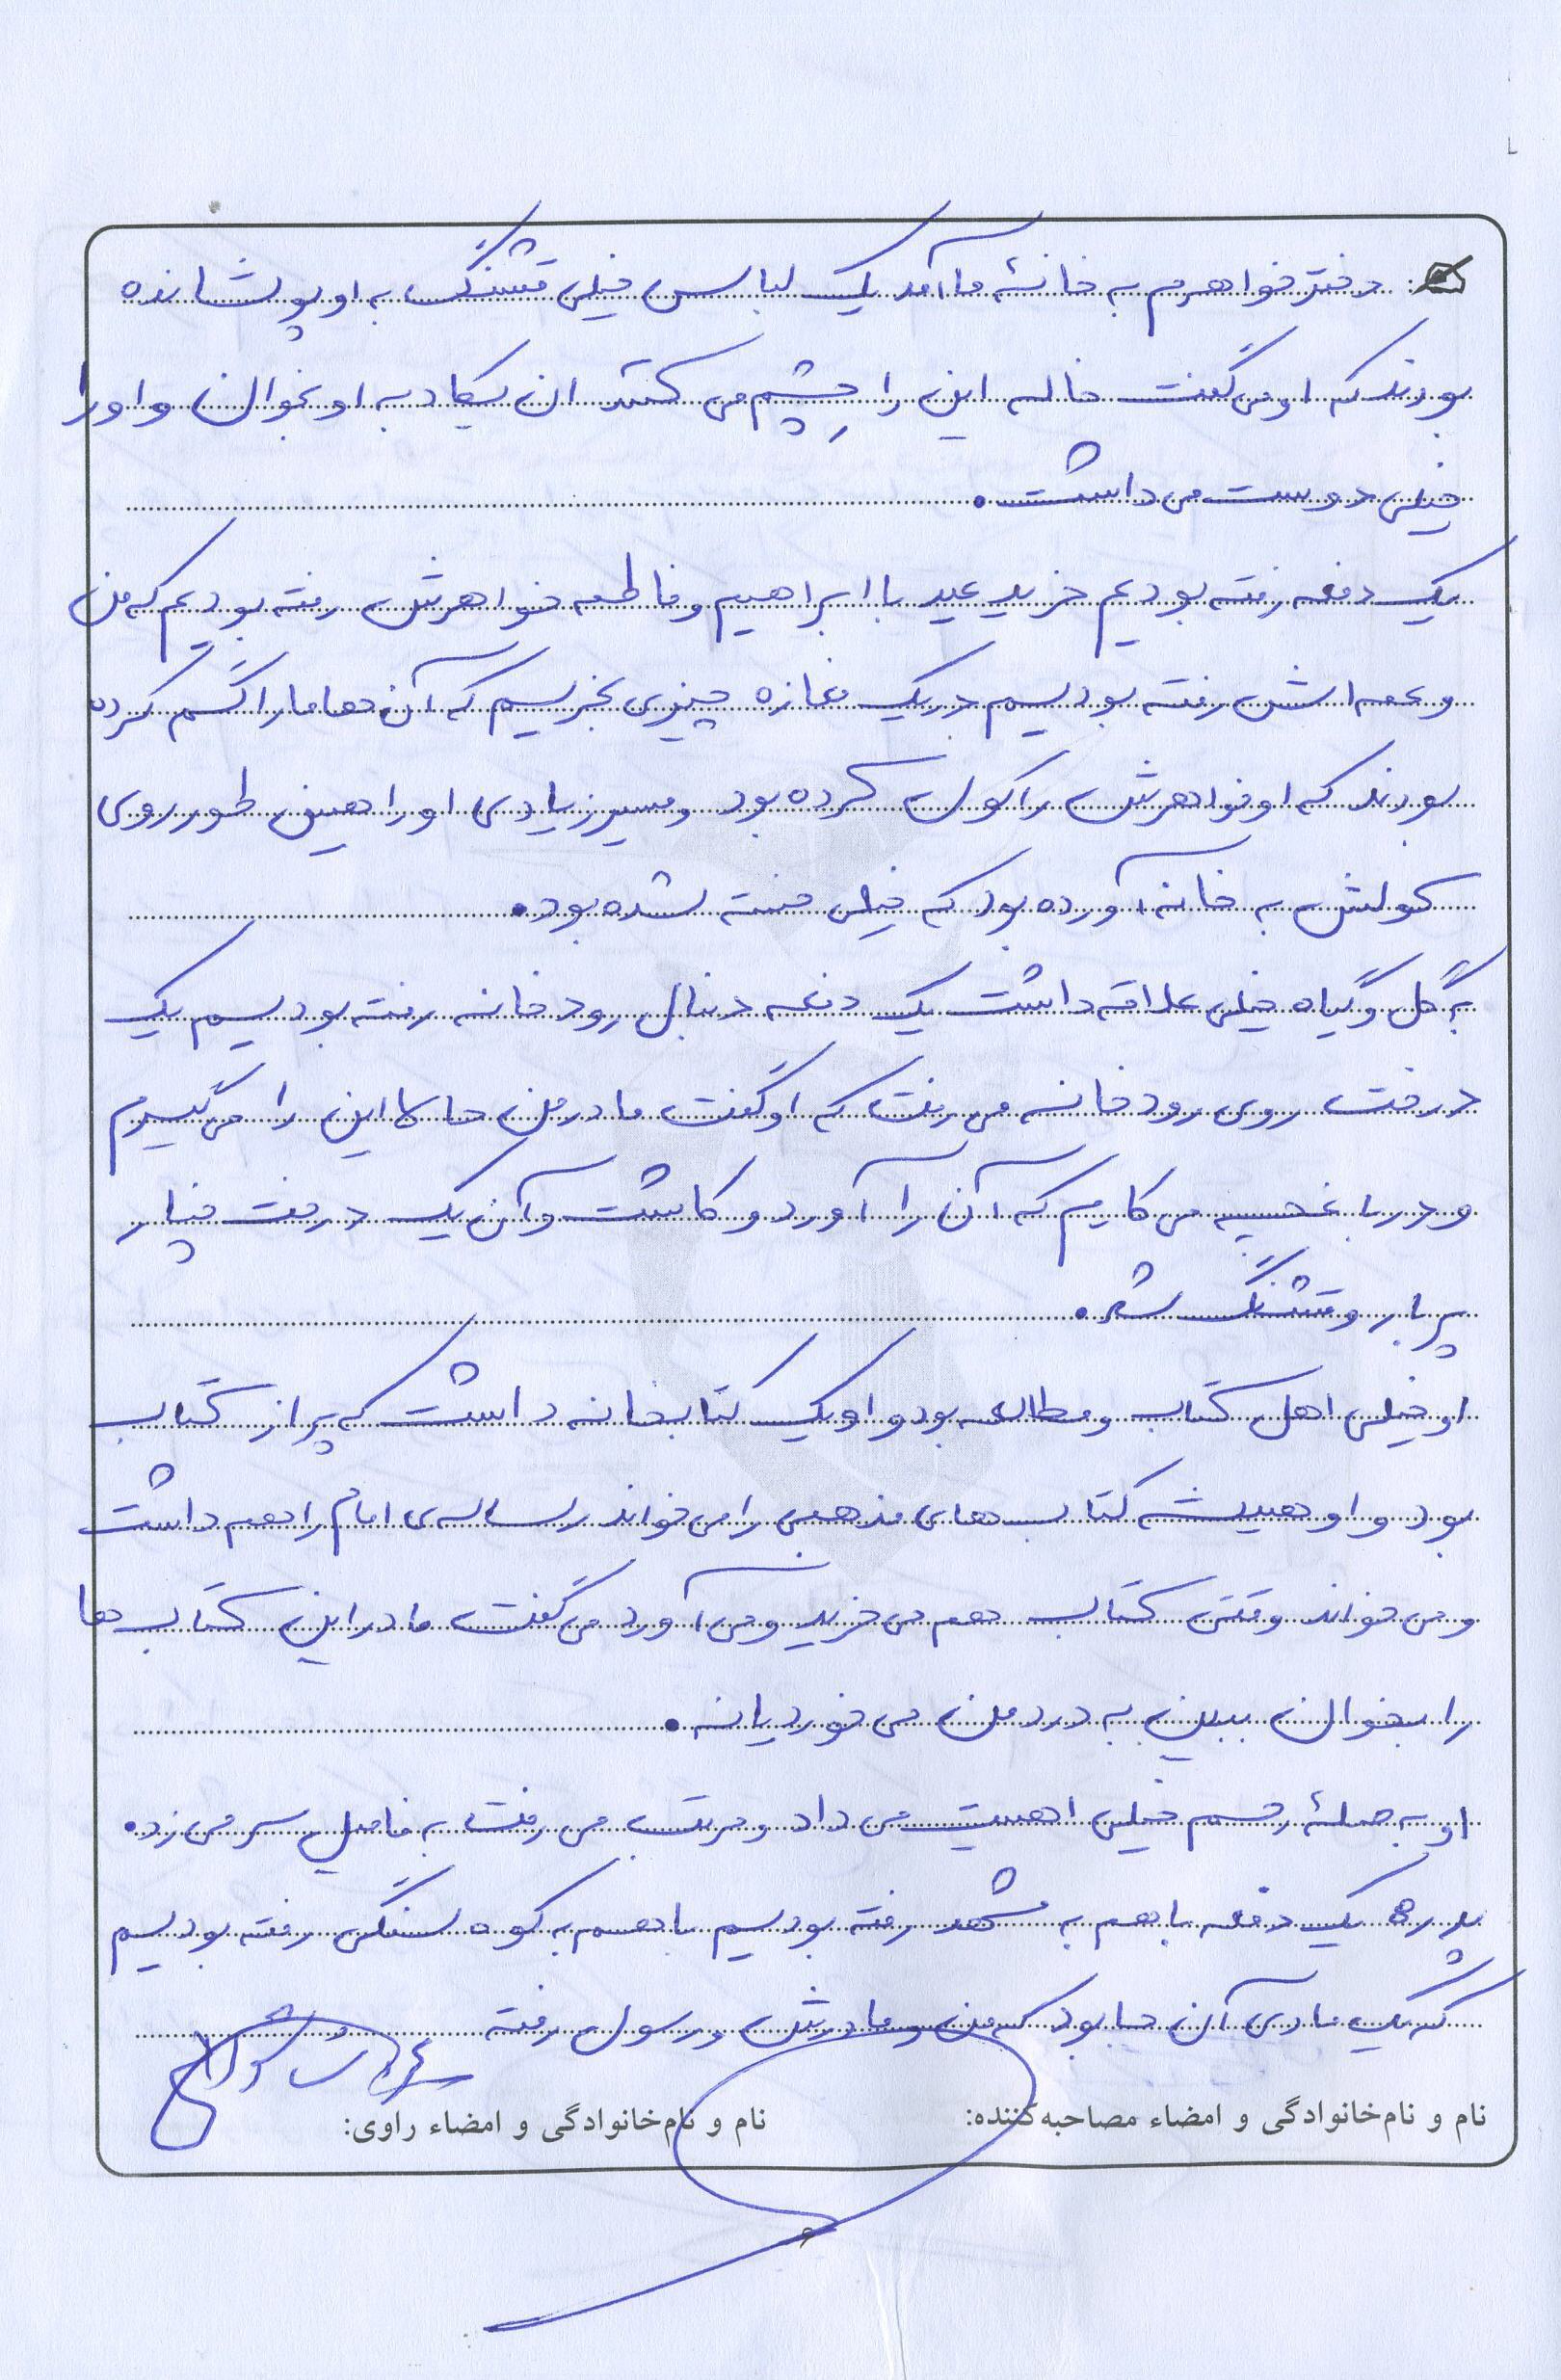 دختر خواهرم به خانهٔ ما آمد یک لباس خیلی قشنگ به او پوشانده
بودند که او می گفت خاله این را چِشم می کنند ان یکاد به او بخوان و او را
خیلی دوست می داشت.
یک دفعه رفته بودیم خرید عید با ابراهیم و فاطمه خواهرش رفته بودیم که من
و عمه اش رفته بودیم در یک مغازه چیزی بخریم که آن ها ما را گم کرده
بودند که او خواهرش را کول کرده بود و مسیر زیادی او را همین طور روی
کولش به خانه آورده بود که خیلی خسته شده بود.
به گل و گیاه خیلی علاقه داشت یک دفعه دنبال رودخانه رفته بودیم یک
درخت روی رودخانه می رفت که او گفت مادر من حالا این را می گیرم
و در باغچه می کارم که آن را آورد و کاشت و آن یک درخت
پربار و قشنگ شد.
او خیلی اهل کتاب و مطالعه بود و او یک کتابخانه داشت که پر از کتاب
بود و او همیشه کتاب های مذهبی را می خواند رساله ی امام را هم داشت
و می خواند وقتی کتاب هم می خرید و می آورد می گفت مادر این کتاب ها
را بخوان ببین به درد من می خورد یا نه.
او به صلهٔ رحم خیلی اهمیت می داد و مرتب می رفت به فامیل سر می زد.
پدر یک دفعه با هم به مشهد رفته بودیم با هم به کوه سنگی رفته بودیم
که یک آن جا بود که من و مادرش و رسول رفته
نام و نام‌خانوادگی و امضاء مصاحبه‌کننده:
نام و نام‌خانوادگی و امضاء راوی:
۶